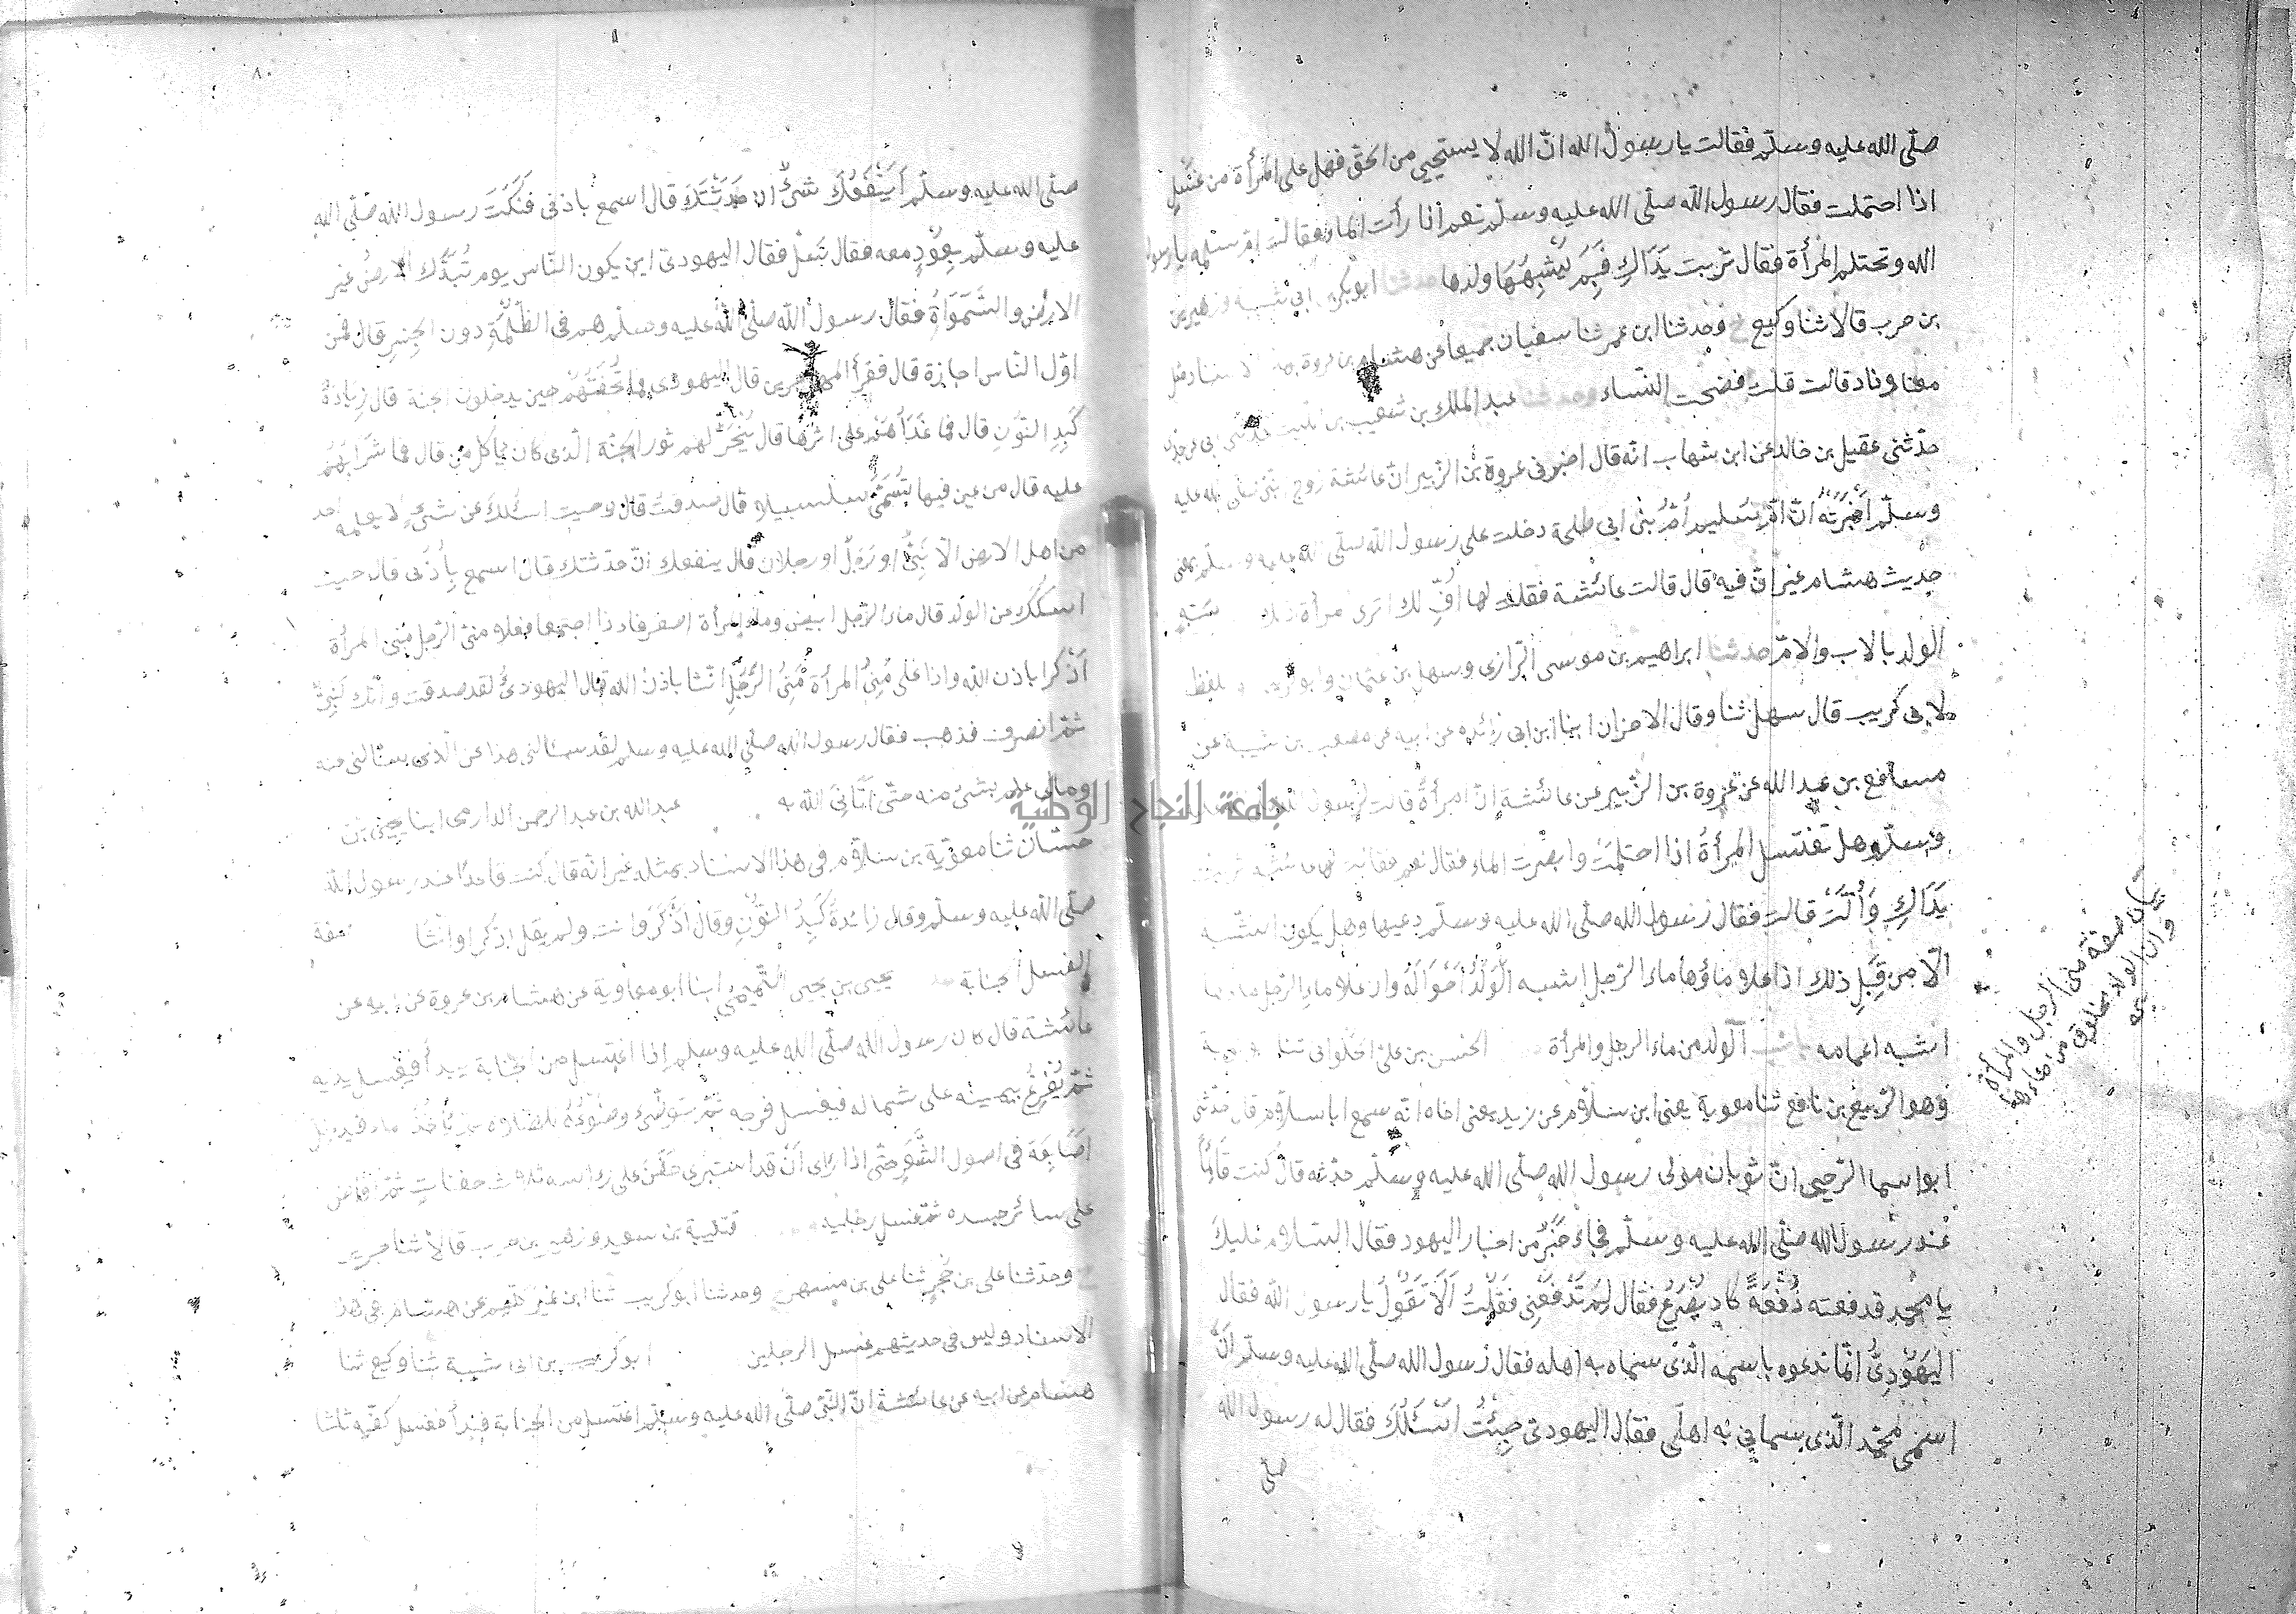 صلّى الله عليه وسلّم فقالت يا رسول الله انّ الله لا يستحيي من الحقّ فهل على المرأة من غسل
اذا احتملت فقال رسول الله صلّى الله عليه وسلّم نعم اذا رأت الماء فقالت امّ سلمه يا رسول
الله وتحتلم المرأة فقال تربت يَدَاكِ فَبِمَ يُشْبِهُهَا ولدها حدثنا ابو بكر بن ابي شيبه وزهير بن
بن حرب قالا ثنا وكيع ح وحدثنا ابن عمر ثنا سفيان جميعا عن هشام بن عروة بهذا الاسناد مثل
معناه وزاد قالت قلت فضحت النّساء وحدثنا عبد الملك بن شعيب بن الليث حدّثني ابي عن جدّي
حدّثني عقيل بن خالد عن ابن شهاب انّه قال اخبرني عروة بن الزّبير انّ عائشة زوج النّبي صلّى الله عليه
وسلّم اَخْبَرَتْهُ انّ امّ سُليم اُمّ بني ابي طلحة دخلت على رسول الله صلّى الله عليه وسلّم بمعنى
حديث هشام غير انّ فيه قال قالت عائشة فقلت لها اُفٍّ لك اترى المرأة ذلك
الولد بالاب والامّ حدثنا ابراهيم بن موسى الرّازى وسهل بن عثمان وابو كريب واللفظ
لابي كريب قال سهل ثنا وقال الاخران ابنا ابن ابي زائده عن ابيه عن مصعب بن شيبة عن
مسافع بن عبد الله عن عروة بن الزّبير عن عائشة انّ امرأةً قالت لرسول الله صلى الله عليه
وسلّم هل تغتسل المرأةُ اذا احتلمَتْ وابصَرت الماء فقال نعم فقالت لها عائشه تربت
يَدَاكِ وَاُلَّتْ قالت فقال رسول الله صلّى الله عليه وسلّم دعيها وهل يكون الشّبه
الّا من قِبَلِ ذلك اذا علا ماؤها ماء الرّجل اشبه الْوَلَدُ اَخْوَالَهُ واذ علا ماء الرّجل ماءها
اشبه اعمامه باب آلولد من ماء الرجل والمرأة الحسن بن علىّ الحلوانى ثنا ابو توبة
وهو الرّبيع بن نافع ثنا معوية يعنى ابن سلاّم عن زيد يعنى اخاه انّه سمع ابا سلاّم قال حدّثنى
ابو اسما الرّحبى انّ ثوبان مولى رسول الله صلّى الله عليه وسلّم حدّثه قال كنت قَائِماً
عند رسول الله صلّى الله عليه وسلّم فجاءَ حَبْرٌ من احبار اليهود فقال السّلام عليكَ
يا محمّد فدفعته دُفْعَةً كاد يُصْرَعُ فقال لِمَ تَدْفَعُنِى فقلْتُ اَلَا تَقُولُ يا رسول الله فقال
اليَهُودِىُّ انّما ندعوه باسمه الّذى سماه به اهله فقال رسول الله صلّى الله عليه وسلّم اَنَّ
اسمى محمّد الّذى سمانى به اهلى فقال اليهودى جِئْتُ اَسْئَلُكَ فقال له رسول الله
صلّى
بيان صفة منى الرجل والمرأة
وان الولد مخلوق من ماءهما
٨٠
صلّى الله عليه وسلّم اَيَنْفَعُكَ شئٌ ان حَدَّثْتُكَ قال اسمع باذنى فَنَكَتَ رسول الله صلّى الله
عليه وسلّم بِعُودٍ معه فقال سَلْ فقال اليهودى اين يكون النّاس يوم تُبَدَّلُ الارضُ غير
الارض والسَّموَاةُ فقال رسول الله صلّى الله عليه وسلّم هم فى الظُّلْمَةِ دون الجِسْرِ قال فمن
اوّل النّاس اجازة قال فقرأ المهاجرين قال اليهودى فما تُحْفَتُهُمْ حين يدخلون الجنة قال زِيَادَةُ
كَبِدِ النّونِ قال فما غَدَاءُهُمْ على اثرها قال يُنْحَرُ لهم ثور الجنّة الّذى كان يأكل من قال فما شَرَابُهُم
عليه قال من عين فيها تُسَمَّى سلسبيلا قال صدقت قال وجيت اسئلك عن شئ لا يعلمه احد
من اهل الارض الّا نَبِىٌّ او رَجُلٌ او رجلان قال ينفعك ان حدّثتك قال اسمع بِاُذُنَى قال جيت
اسئلك عن الولد قال ماء الرّجل ابيض وماء المرأة اصفر فاذا اجتمعا فعلا منىّ الرّجل مَنِىَ المرأة
اَذْكَرا باذن الله واذا علا مَنِىُّ المرأة مَنِىُّ الرَّجُلِ انثا باذن الله قال اليهودىُّ لقد صدقت وانّك لَنَبِىٌّ
ثمّ انصرف فذهب فقال رسول الله صلّى الله عليه وسلم لقد سئالنى هذا عن الّذى سئالنى عنه
ومالى علم بشئ منه حتى اَتَانِىَ الله به عبد الله بن عبد الرحمن الدارمى ابنا يحيى بن
حسّان ثنا معوية بن سلاّم فى هذا الاسناد بمثله غير انّه قال كنت قاعدًا عند رسول الله
صلّى الله عليه وسلّم وقال زائدةُ كَبِدُ النُّوْنِ وقال اَذْكَرَ وانث ولم يقل اذكرا وانثا صفة
الغسل الجنابة يحيى بن يحيى التَّمِيمِىُّ ابنا ابو معاوية عن هشام بن عروة عن ابيه عن
عائشة قال كان رسول الله صلّى الله عليه وسلم اذا اغتسل من الجنابة يبدأ فيغسل يديه
ثمّ يُفْرِغُ بيمينه على شماله فيغسل فرجه ثمّ يتوضّئ وضُوءَهُ للصّلاه ثمّ يَأْخُذُ الماء فيدخل
اَصَابِعَهُ فى اصول الشَّعَرِ حتّى اذا راى اَنْ قد استبرى حَفَنَ على رأسه ثلاث حفناتٍ ثمّ افاض
على سائر جسده ثمّ غسل رجليه قتيبة بن سعيد وزهير بن حرب قالا ثنا جرير
ح وحدّثنا على بن حُجْرٍ ثنا على بن مسهر ح وحدثنا ابو كريب ثنا ابن نمير كلّهم عن هشام فى هذا
الاسناد وليس فى حديثهم غسل الرجلين ابو بكر بن ابى شيبة ثنا وكيع ثنا
هشام عن ابيه عن عائشة انّ النّبىّ صلّى الله عليه وسلّم اغتسل من الجنابة فبدأ فغسل كفّيه ثلثا
جامعة النجاح الوطنية